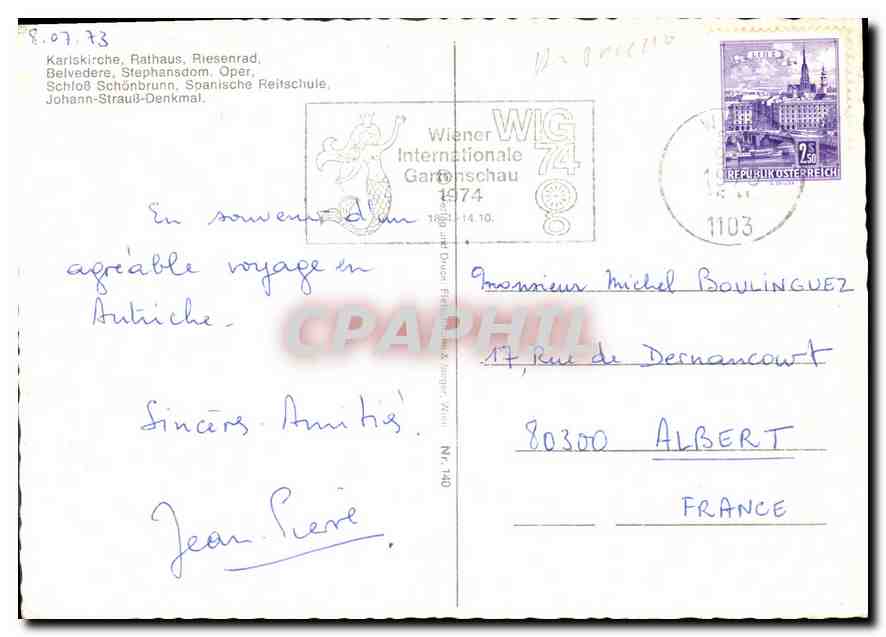 8.07.73
Karlskirche, Rathaus, Riesenrad,
Belvedere, Stephansdom, Oper,
Schloß Schönbrunn, Spanische Reitschule,
Johann-Strauß-Denkmal.
Wiener WIG
Internationale 74
Gartenschau
1974
14.10.
LINZ
2 S 50
REPUBLIK ÖSTERREICH
1103
En souvenir d'un
agréable voyage en
Autriche.
Sincères Amitiés.
Jean-Pierre
Verlag und Druck
Wien
Nr. 140
CPAPHIL
Monsieur Michel BOULINGUEZ
17, Rue de Dernancourt
80300 ALBERT
FRANCE